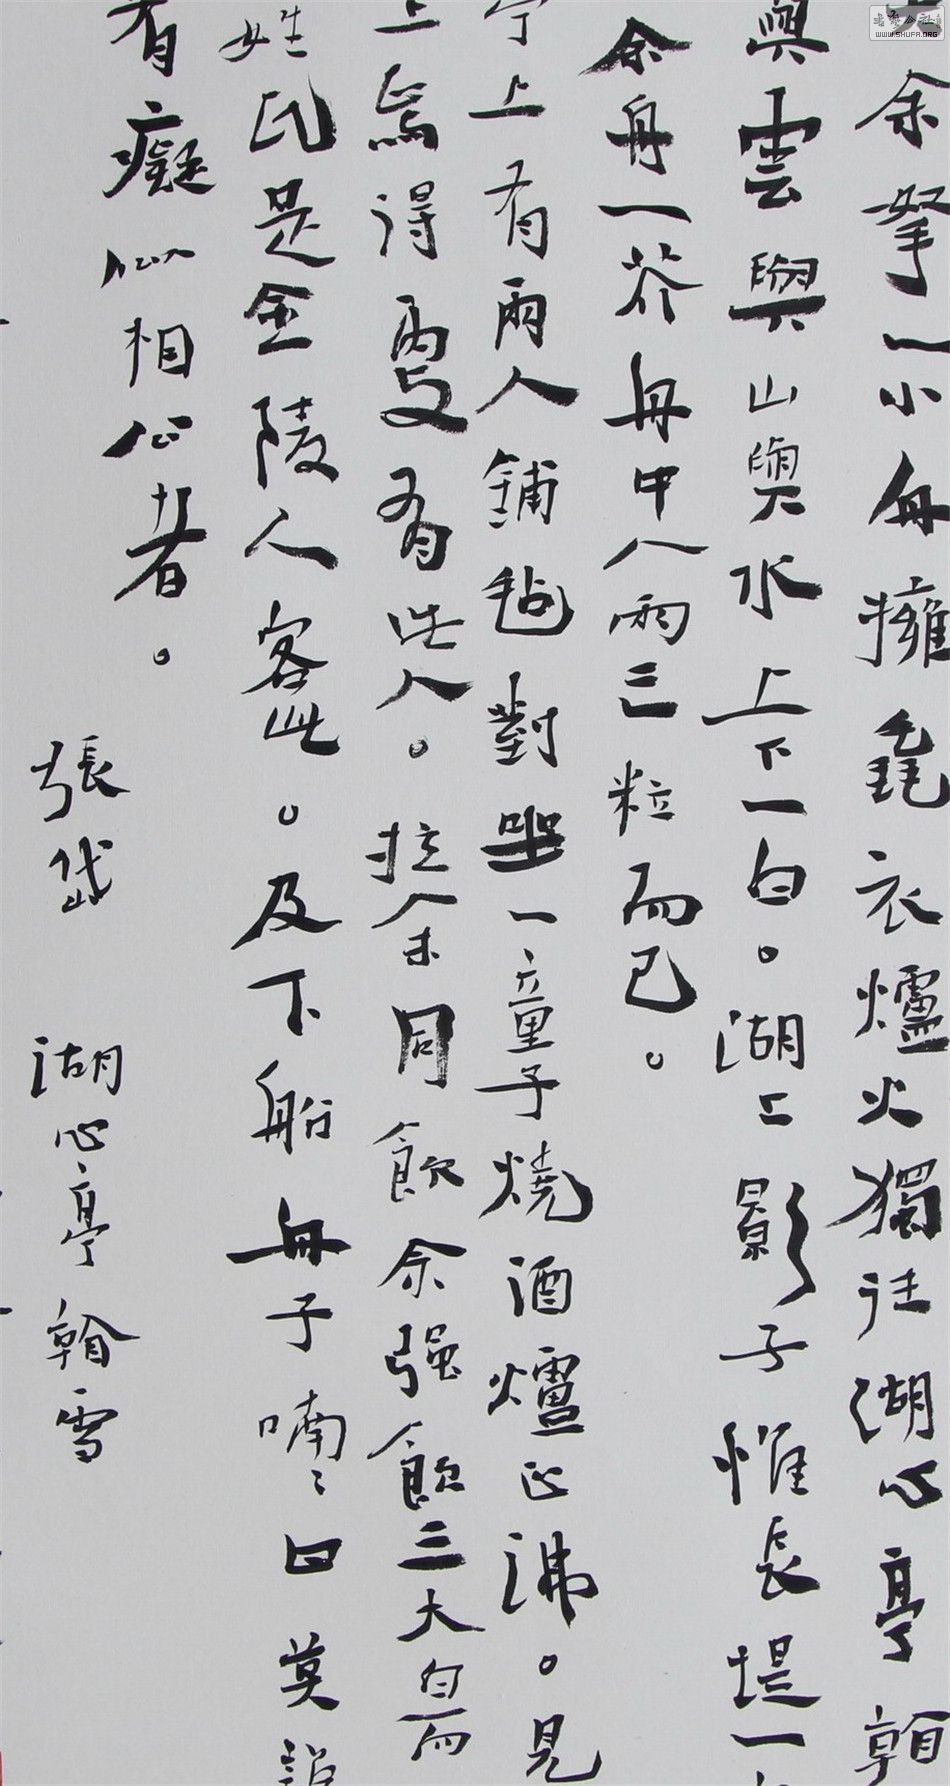 余拏一小舟擁毳衣爐火獨往湖心亭看
與雲與山與水上下一白。湖上影子惟長堤一
余舟一芥舟中人兩三粒而已。
亭上有兩人鋪毡對坐一童子燒酒爐正沸。見
上焉得更有此人。拉余同飲余强飲三大白而
姓氏是金陵人客此。及下船舟子喃〻曰莫說
有癡似相公者。
張岱 湖心亭看雪
書法公社
WWW.SHUFA.ORG